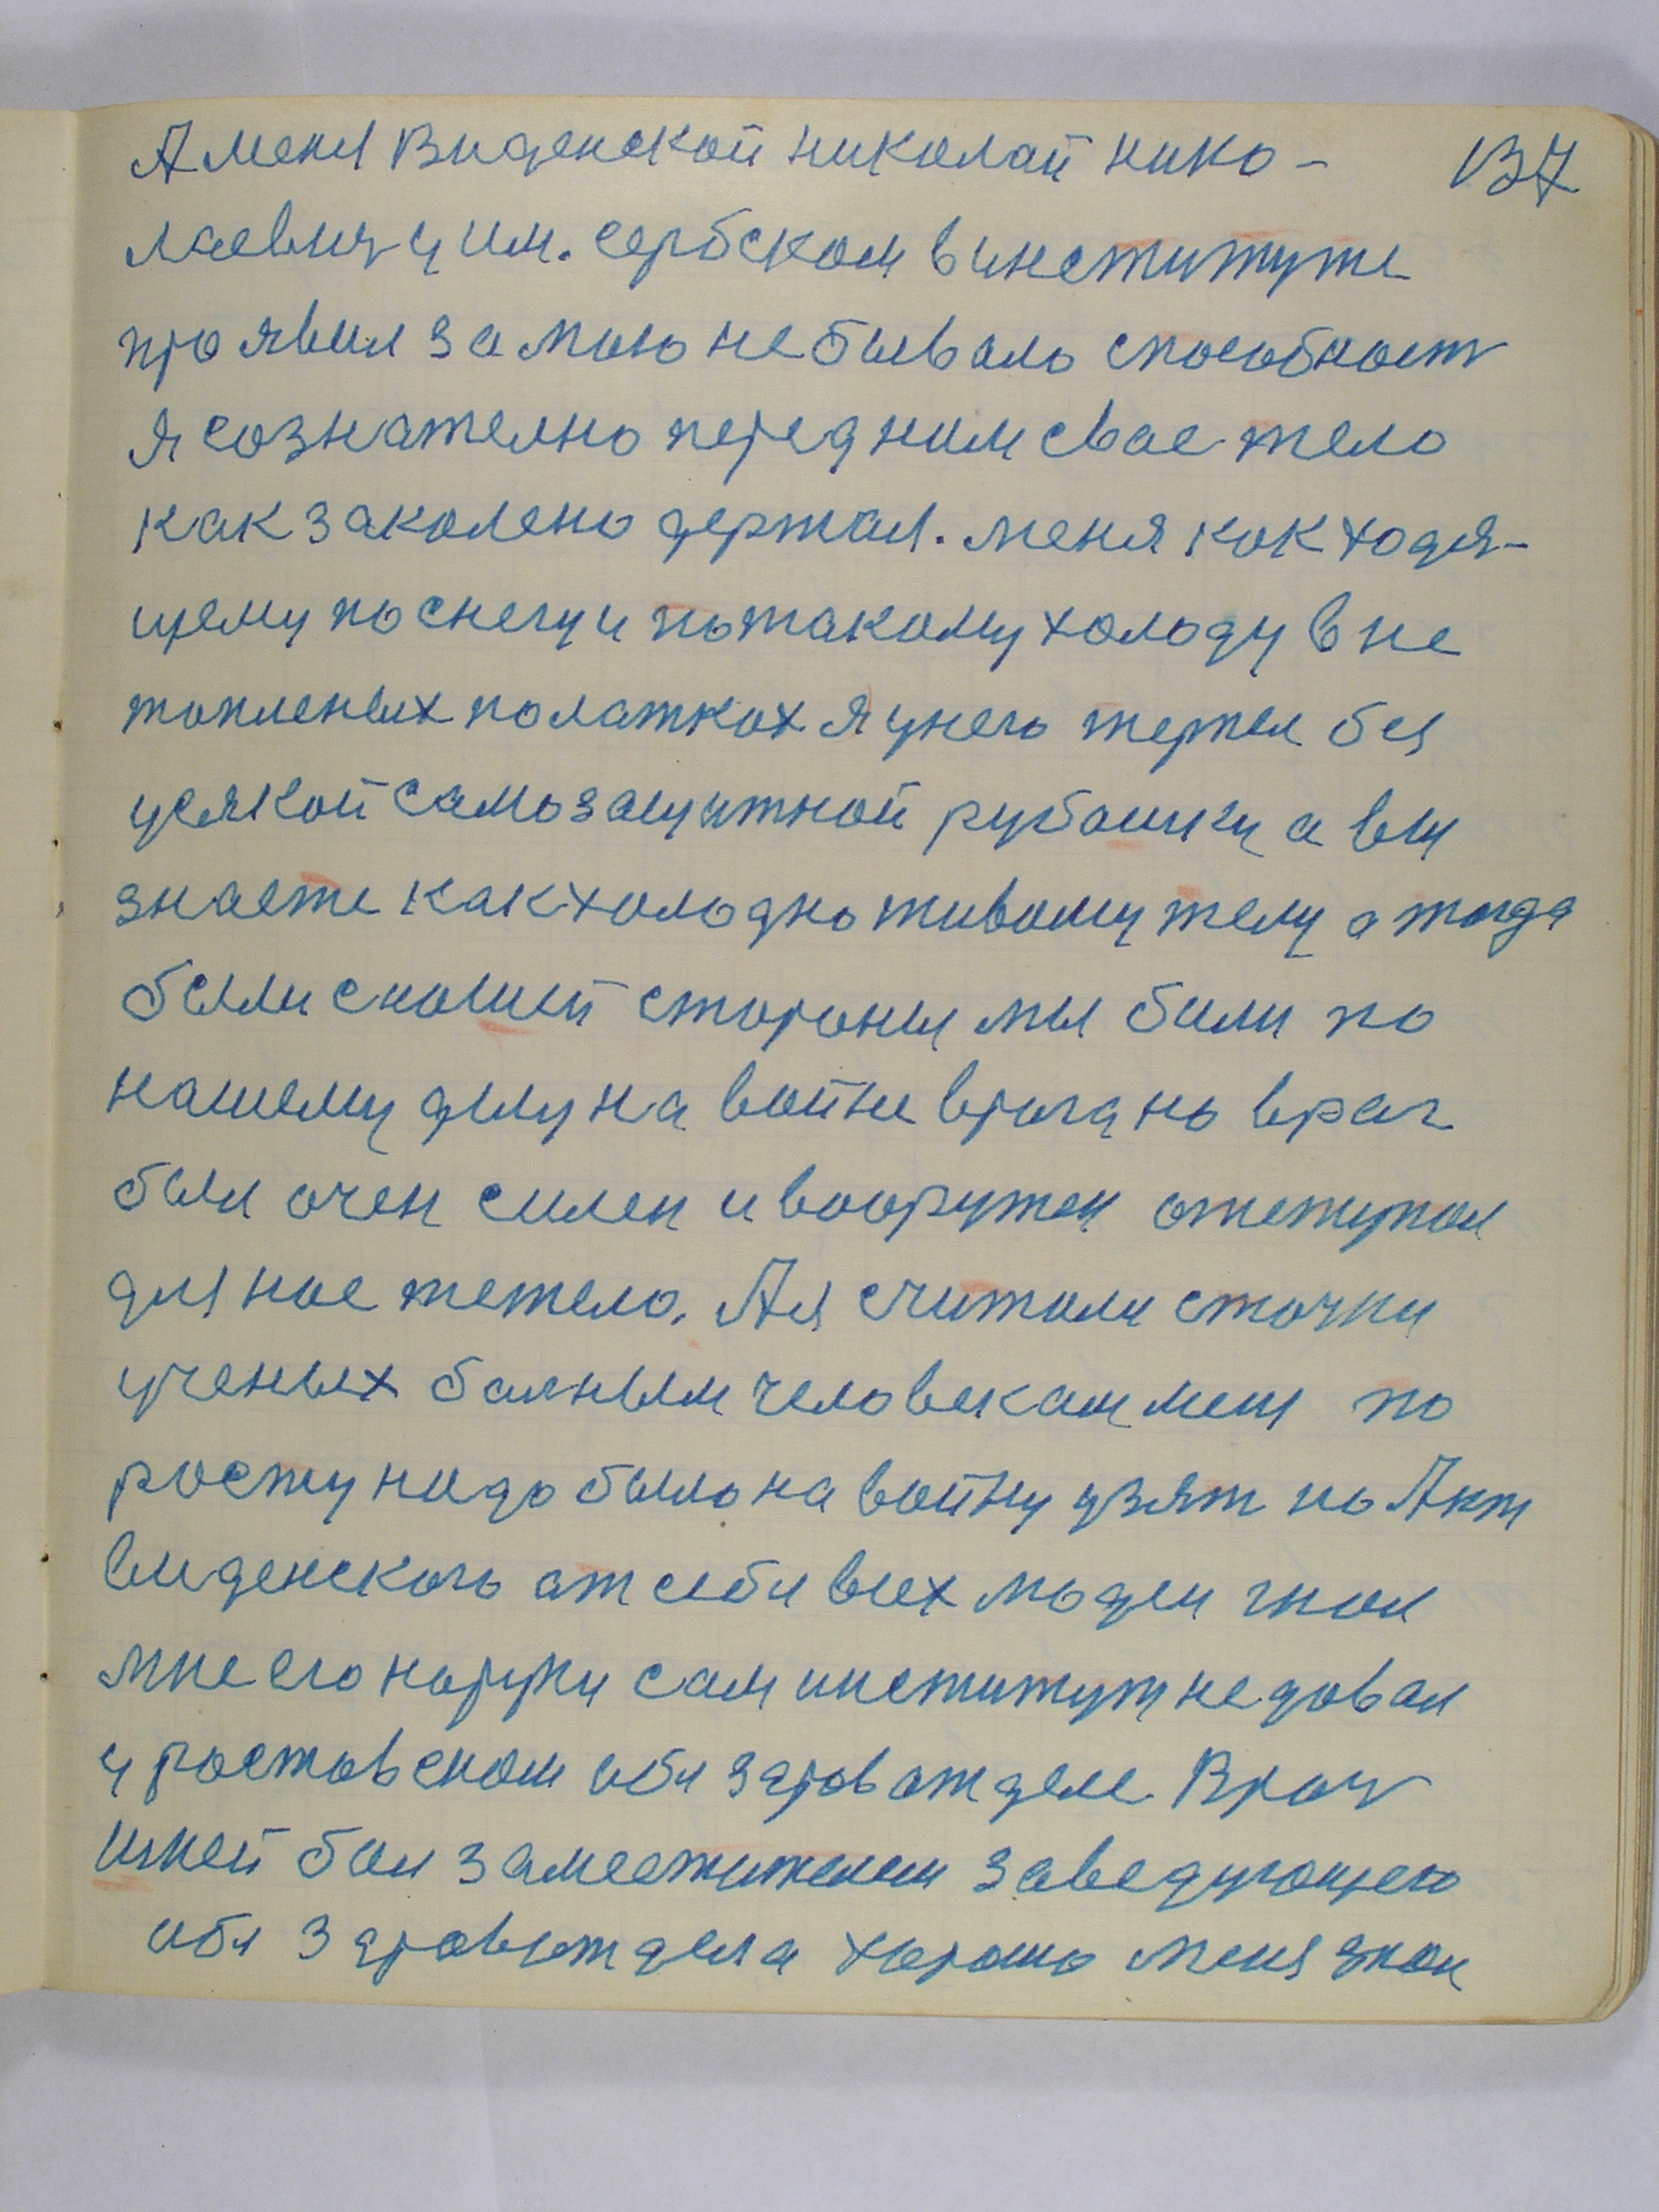 А меня Виденской николай нико-
137
лаевич у им. сербском в институте
проявил за мною небывало способност
я сознателно перед ним свае тело
как заколено держал. меня как ходя-
щему по снегу и по такому холоду в не
топленых полатках я у него терпел без
усякой самозащитной рубашки а вы
знаете как холодно живому телу а тогда
были с нашей стороны мы били по
нашему делу на войне врага но враг
был очен силен и вооружен отступал
для нас тежело. А я считали сточки
ученых балным человекам меня по
росту надо было на войну узят но Акт
виденского от себя всех людей гнал
мне его на руки сам институт не довал
у ростовском обл здравотделе Врач
шкей был заместителем заведующего
обл Здравотдела харошо меня знал